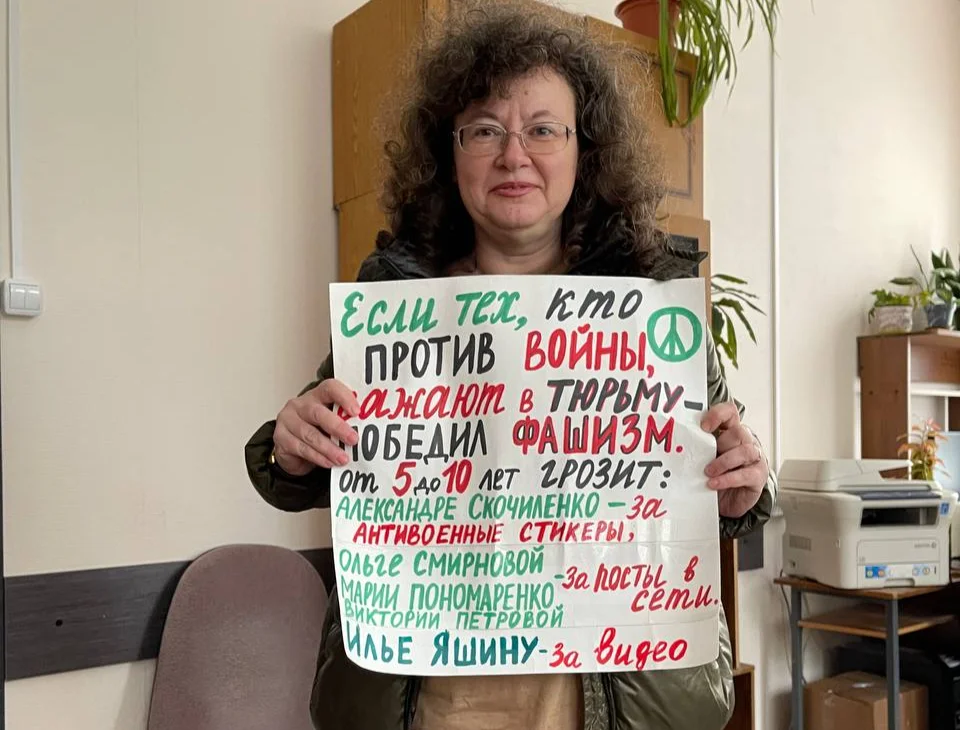 Если тех, кто
ПРОТИВ ВОЙНЫ,
сажают в ТЮРЬМУ –
ПОБЕДИЛ ФАШИЗМ.
от 5 до 10 лет грозит:
Александре Скочиленко – за
АНТИВОЕННЫЕ СТИКЕРЫ,
Ольге Смирновой
Марии Пономаренко
Виктории Петровой
- за посты в
сети.
Илье Яшину - за видео